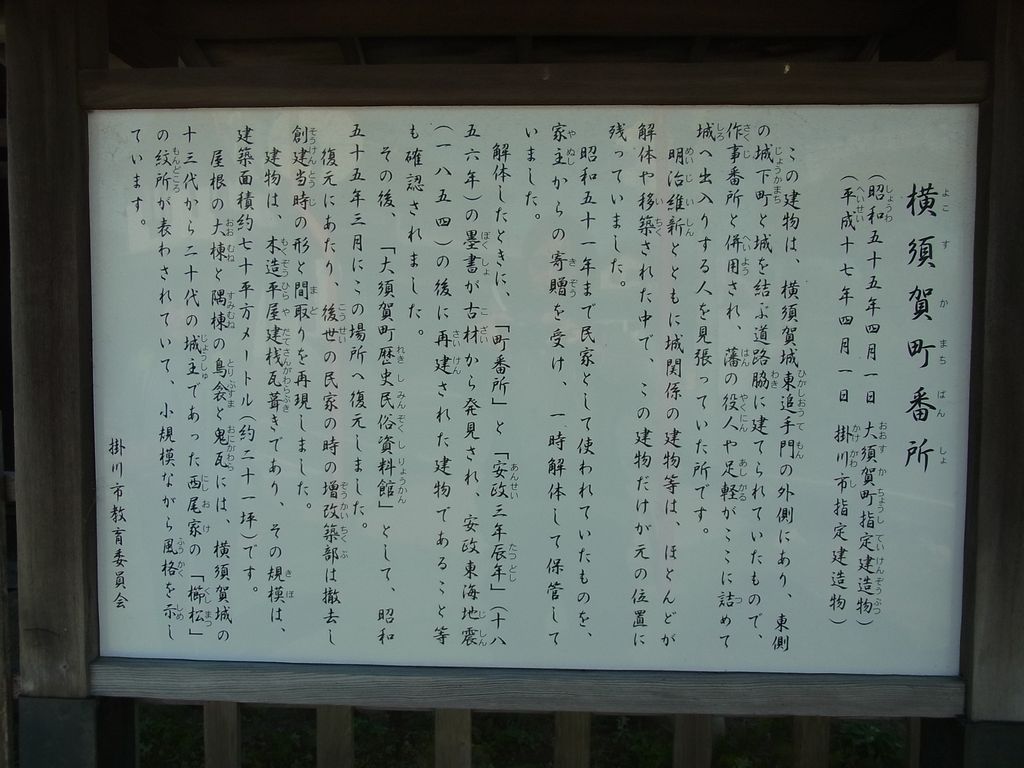 横須賀町番所
（昭和五十五年四月一日　大須賀町指定建造物）
（平成十七年四月一日　掛川市指定建造物）
この建物は、横須賀城東追手門の外側にあり、東側
の城下町と城を結ぶ道路脇に建てられていたもので、
作事番所と併用され、藩の役人や足軽がここに詰めて
城へ出入りする人を見張っていた所です。
明治維新とともに城関係の建物等は、ほとんどが
解体や移築された中で、この建物だけが元の位置に
残っていました。
昭和五十一年まで民家として使われていたものを、
家主からの寄贈を受け、一時解体して保管して
いました。
解体したときに、「町番所」と「安政三年辰年」（十八
五六年）の墨書が古材から発見され、安政東海地震
（一八五四）の後に再建された建物であること等
も確認されました。
その後、「大須賀町歴史民俗資料館」として、昭和
五十五年三月にこの場所へ復元しました。
復元にあたり、後世の民家の時の増改築部は撤去し
創建当時の形と間取りを再現しました。
建物は、木造平屋建桟瓦葺きであり、その規模は、
建築面積約七十平方メートル（約二十一坪）です。
屋根の大棟と隅棟の鳥衾と鬼瓦には、横須賀城の
十三代から二十代の城主であった西尾家の「櫛松」
の紋所が表わされていて、小規模ながら風格を示し
ています。
掛川市教育委員会